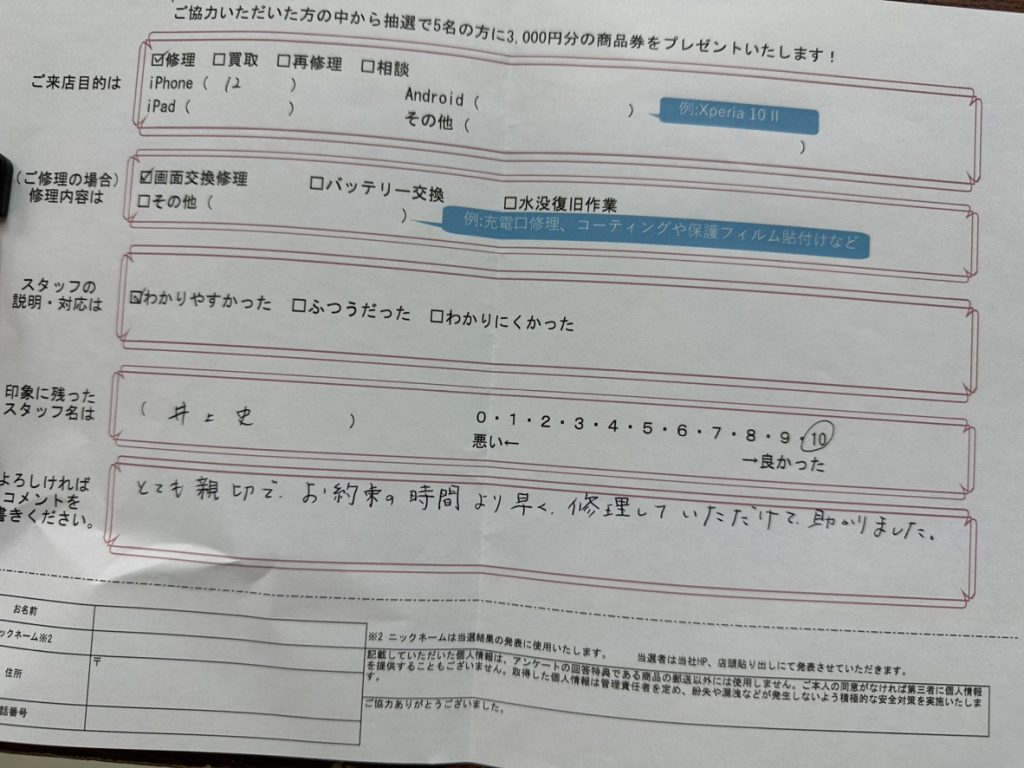 ご協力いただいた方の中から抽選で5名の方に3,000円分の商品券をプレゼントいたします！
ご来店目的は
☑修理 □買取 □再修理 □相談
iPhone（ 12 ）
Android（ ）
例:Xperia 10 II
iPad（ ）
その他（ ）
（ご修理の場合）
修理内容は
☑画面交換修理 □バッテリー交換 □水没復旧作業
□その他（ ）
例:充電口修理、コーティングや保護フィルム貼付けなど
スタッフの
説明・対応は
☑わかりやすかった □ふつうだった □わかりにくかった
印象に残った
スタッフ名は
（ 井上史 ）
0・1・2・3・4・5・6・7・8・9・10
悪い← →良かった
よろしければ
コメントを
書きください。
とても親切で、お約束の時間より早く、修理していただけて、助かりました。
お名前
ックネーム※2
住所
〒
話番号
※2 ニックネームは当選結果の発表に使用いたします。 当選者は当社HP、店頭貼り出しにて発表させていただきます。
記載していただいた個人情報は、アンケートの回答特典である商品の郵送以外には使用しません。ご本人の同意がなければ第三者に個人情報
を提供することもございません。取得した個人情報は管理責任者を定め、紛失や漏洩などが発生しないよう積極的な安全対策を実施いたしま
す。
ご協力ありがとうございました。